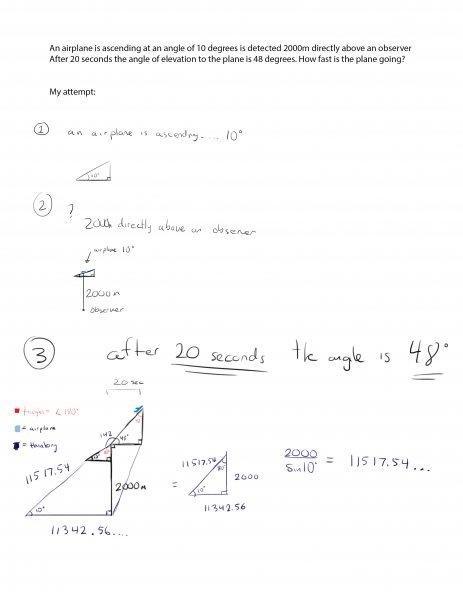 An airplane is ascending at an angle of 10 degrees is detected 2000m directly above an observer
After 20 seconds the angle of elevation to the plane is 48 degrees. How fast is the plane going?
My attempt:
① an airplane is ascending.... 10°
10°
② ?
directly above an observer
airplane 10°
2000m
observer
③ after 20 seconds the angle is 48°
20 sec
= airplane
142
48°
11517.54
2000m
10°
11342.56....
=
11517.54
80°
2000
10°
11342.56
2000
Sin10° = 11517.54...